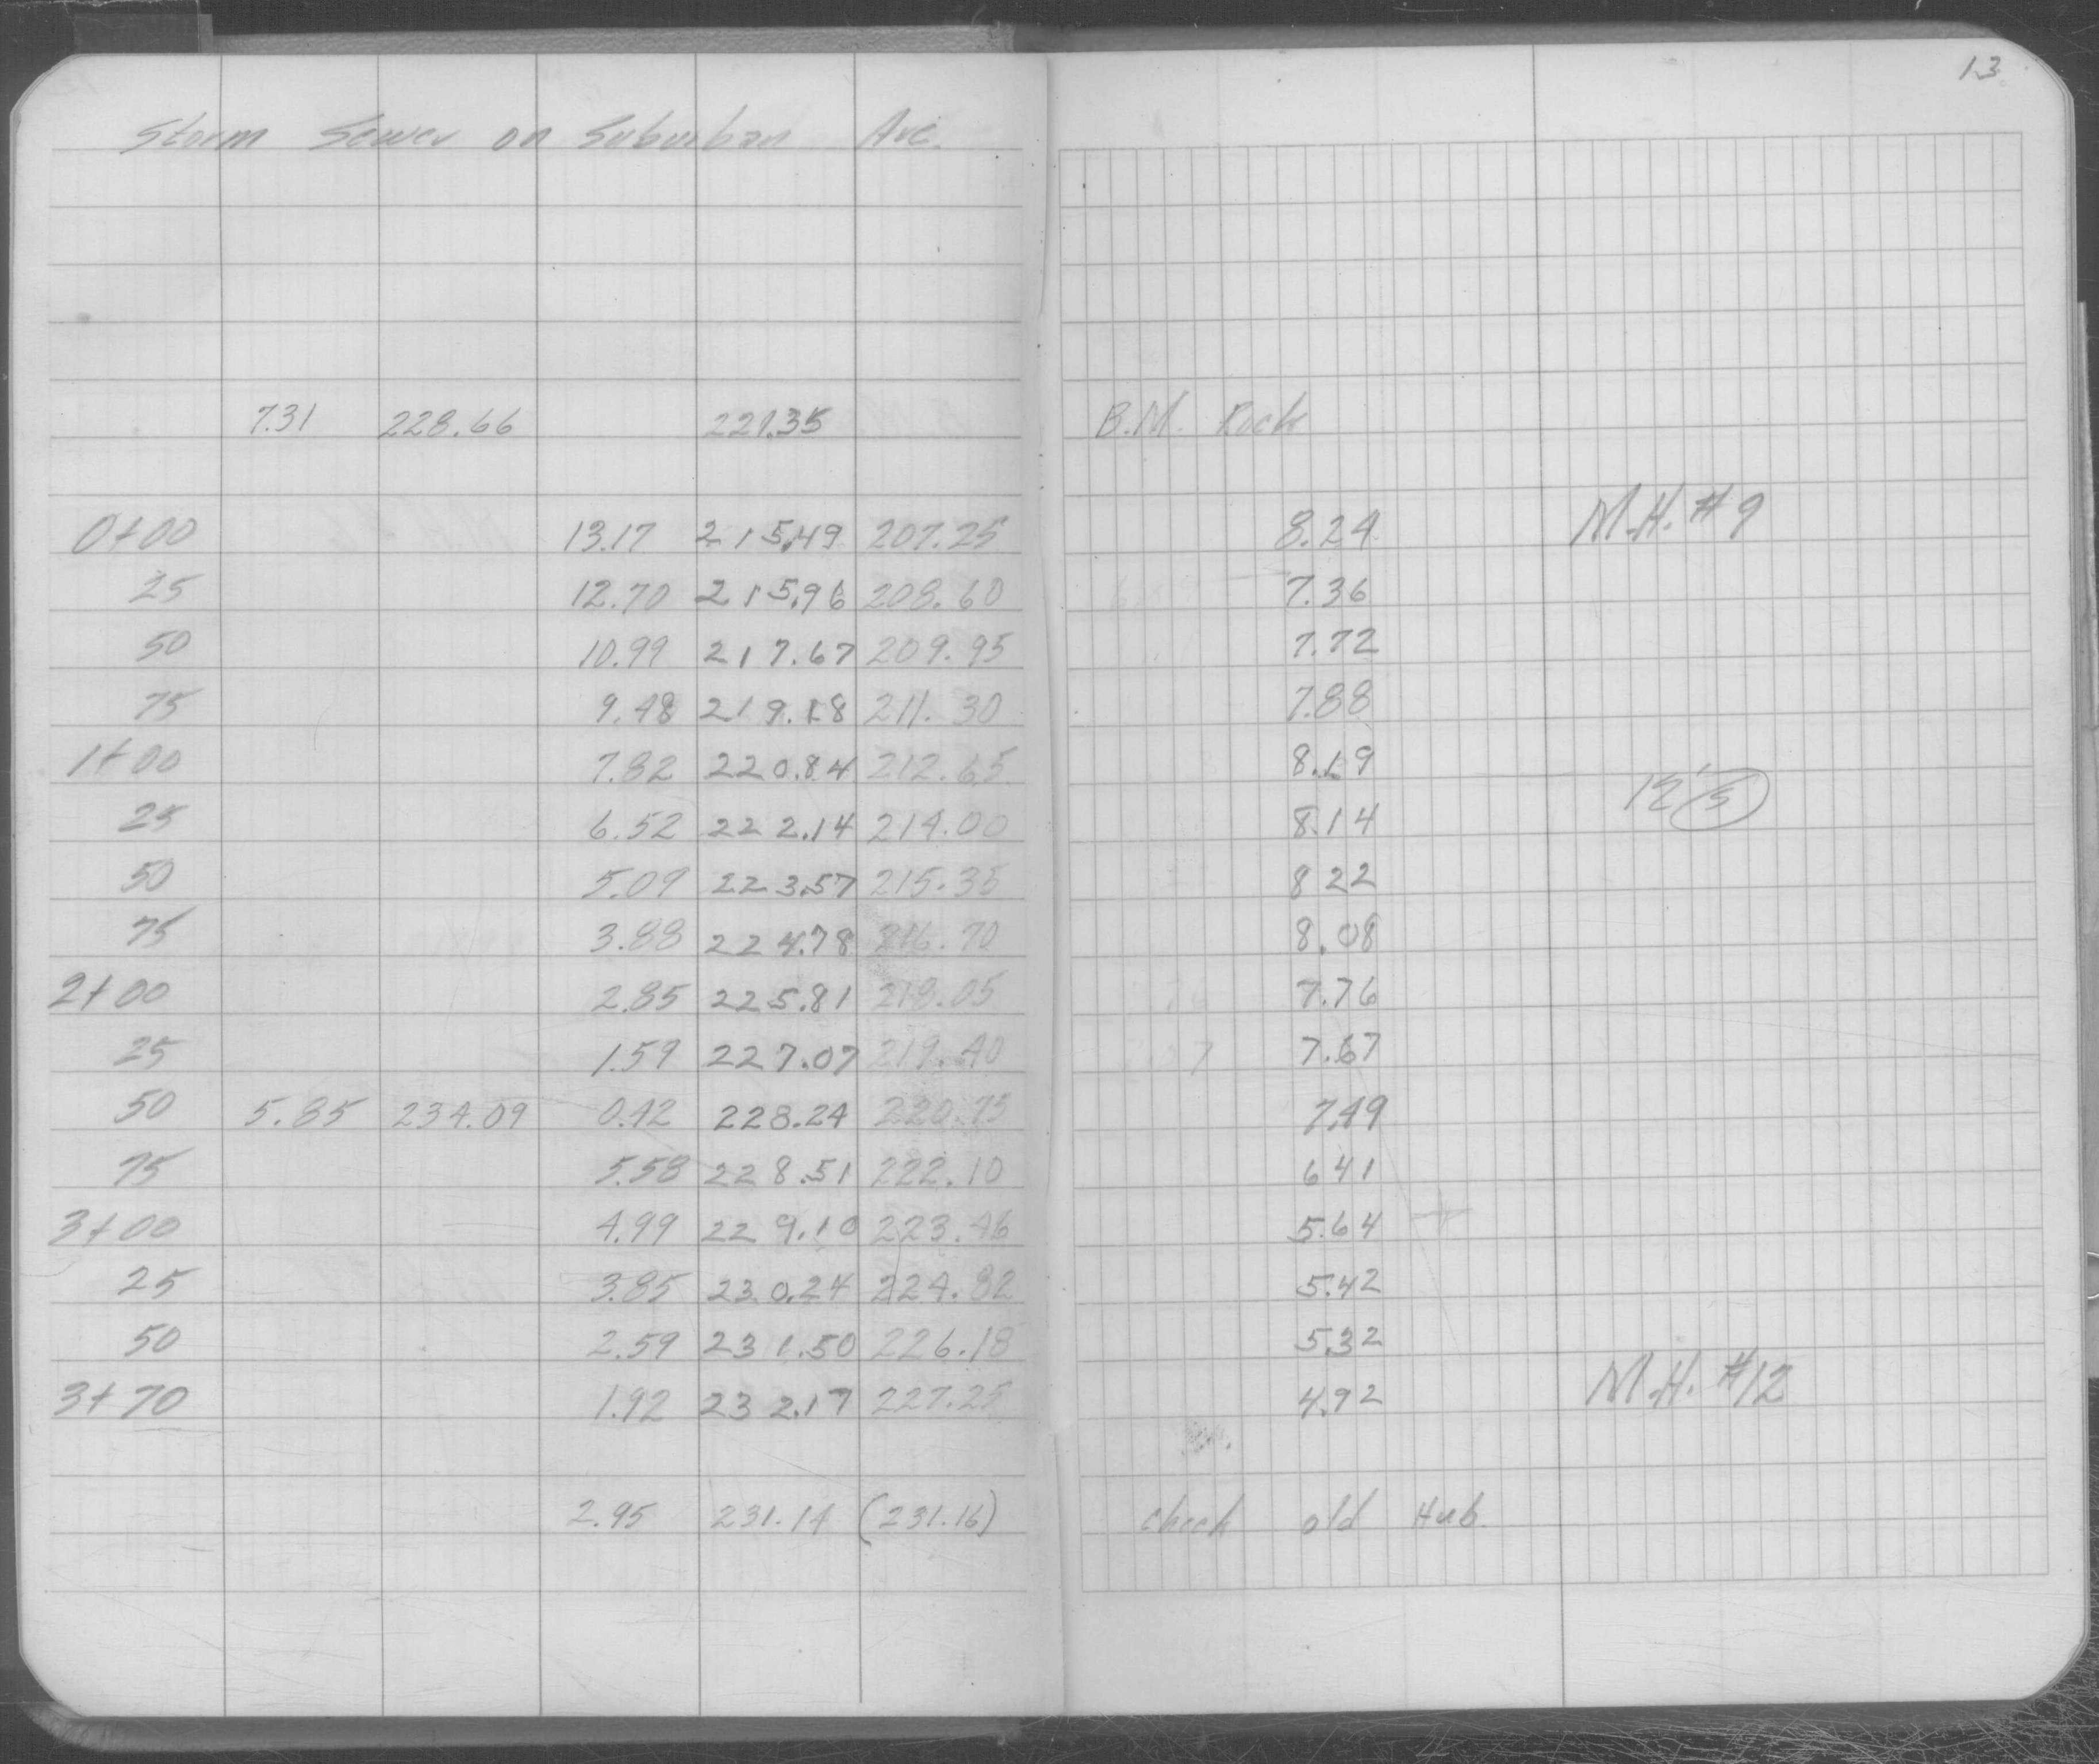 13
Storm Sewer on Suburban Ave.
7.31 228.66 221.35 B.M. Rock
0+00 13.17 215.49 207.25 8.24 M.H. #9
25 12.70 215.96 208.60 7.36
50 10.99 217.67 209.95 7.72
75 9.48 219.18 211.30 7.88
1+00 7.82 220.84 212.65 8.19
25 6.52 222.14 214.00 8.14
50 5.09 223.57 215.35 8 22
75 3.88 224.78 216.70 8.08
2+00 2.85 225.81 218.05 7.76
25 1.59 227.07 219.40 7.67
50 5.85 234.09 0.42 228.24 220.75 7.49
75 5.58 228.51 222.10 6 41
3+00 4.99 229.10 223.46 5.64
25 3.85 230.24 224.82 5.42
50 2.59 231.50 226.18 5.32
3+70 1.92 232.17 227.25 4.92 M.H. #12
2.95 231.14 (231.16) check old Hub.